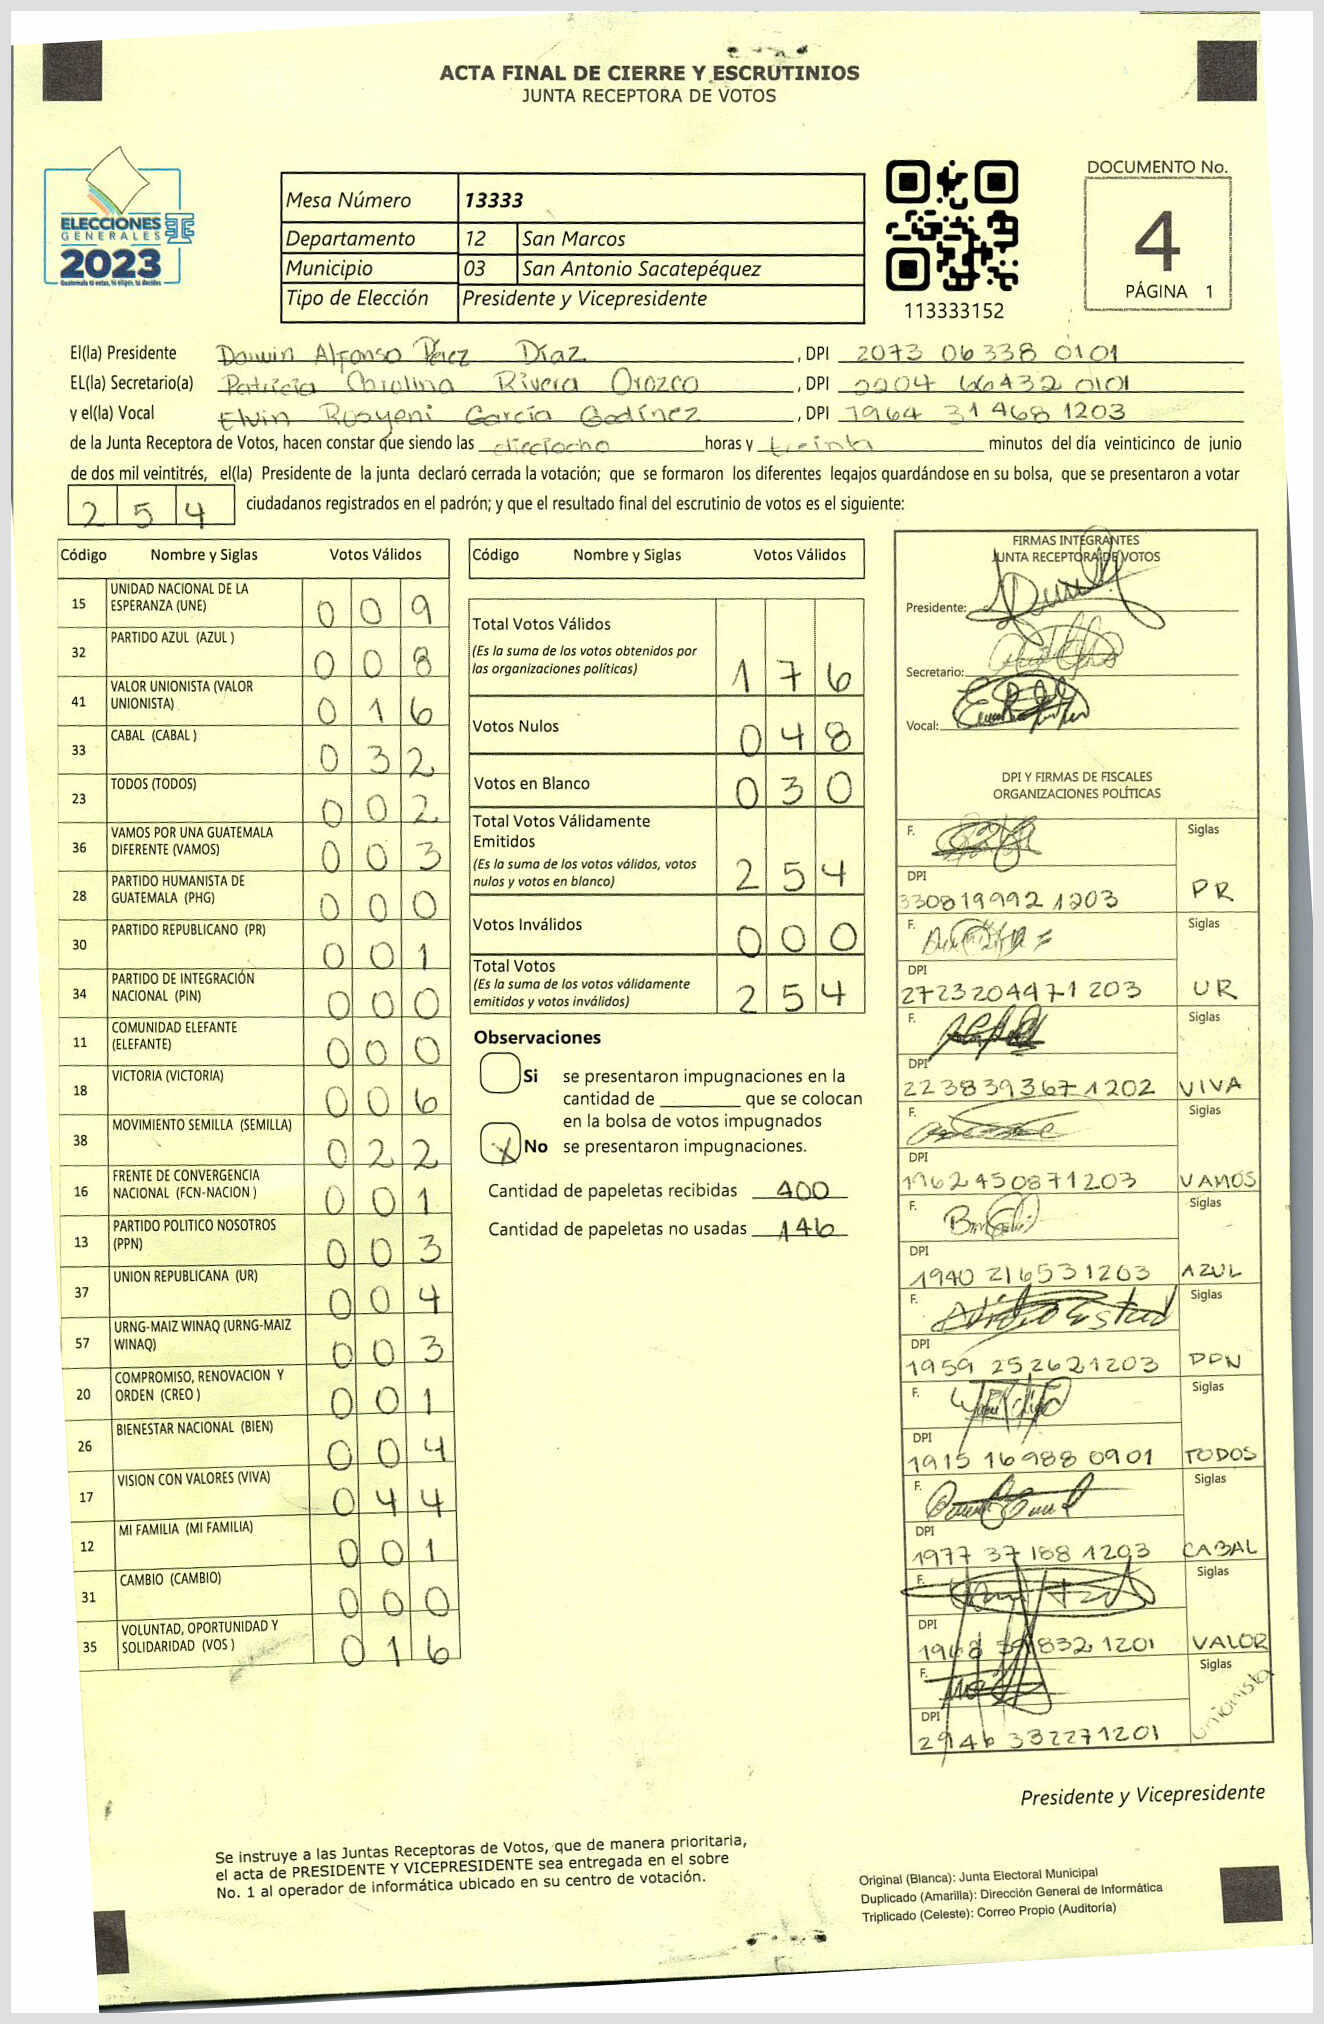 ACTA FINAL DE CIERRE Y ESCRUTINIOS
JUNTA RECEPTORA DE VOTOS
ELECCIONES
GENERALES
2023
Guatemala tú votas, tú eliges, tú decides
Mesa Número 13333
Departamento 12 San Marcos
Municipio 03 San Antonio Sacatepéquez
Tipo de Elección Presidente y Vicepresidente
113333152
DOCUMENTO No.
4
PÁGINA 1
El(la) Presidente Darwin Alfonso Pérez Díaz , DPI 2073 06338 0101
EL(la) Secretario(a) Patricia Carolina Rivera Orozco , DPI 2204 66432 0101
y el(la) Vocal Elvin Rosyeni García Godínez , DPI 1964 31468 1203
de la Junta Receptora de Votos, hacen constar que siendo las dieciocho horas y treinta minutos del día veinticinco de junio
de dos mil veintitrés, el(la) Presidente de la junta declaró cerrada la votación; que se formaron los diferentes legajos guardándose en su bolsa, que se presentaron a votar
254 ciudadanos registrados en el padrón; y que el resultado final del escrutinio de votos es el siguiente:
Código Nombre y Siglas Votos Válidos
15 UNIDAD NACIONAL DE LA ESPERANZA (UNE) 009
32 PARTIDO AZUL (AZUL ) 008
41 VALOR UNIONISTA (VALOR UNIONISTA) 016
33 CABAL (CABAL ) 032
23 TODOS (TODOS) 002
36 VAMOS POR UNA GUATEMALA DIFERENTE (VAMOS) 003
28 PARTIDO HUMANISTA DE GUATEMALA (PHG) 000
30 PARTIDO REPUBLICANO (PR) 001
34 PARTIDO DE INTEGRACIÓN NACIONAL (PIN) 000
11 COMUNIDAD ELEFANTE (ELEFANTE) 000
18 VICTORIA (VICTORIA) 006
38 MOVIMIENTO SEMILLA (SEMILLA) 022
16 FRENTE DE CONVERGENCIA NACIONAL (FCN-NACION ) 001
13 PARTIDO POLITICO NOSOTROS (PPN) 003
37 UNION REPUBLICANA (UR) 004
57 URNG-MAIZ WINAQ (URNG-MAIZ WINAQ) 003
20 COMPROMISO, RENOVACION Y ORDEN (CREO ) 001
26 BIENESTAR NACIONAL (BIEN) 004
17 VISION CON VALORES (VIVA) 044
12 MI FAMILIA (MI FAMILIA) 001
31 CAMBIO (CAMBIO) 000
35 VOLUNTAD, OPORTUNIDAD Y SOLIDARIDAD (VOS ) 016
Código Nombre y Siglas Votos Válidos
Total Votos Válidos
(Es la suma de los votos obtenidos por
las organizaciones políticas) 176
Votos Nulos 048
Votos en Blanco 030
Total Votos Válidamente
Emitidos
(Es la suma de los votos válidos, votos
nulos y votos en blanco) 254
Votos Inválidos 000
Total Votos
(Es la suma de los votos válidamente
emitidos y votos inválidos) 254
Observaciones
Si se presentaron impugnaciones en la
cantidad de ________ que se colocan
en la bolsa de votos impugnados
X No se presentaron impugnaciones.
Cantidad de papeletas recibidas 400
Cantidad de papeletas no usadas 146
FIRMAS INTEGRANTES
JUNTA RECEPTORA DE VOTOS
Presidente:
Secretario:
Vocal:
DPI Y FIRMAS DE FISCALES
ORGANIZACIONES POLÍTICAS
F. Siglas
DPI
330819992 1203 PR
F. Siglas
DPI
2723204471 203 UR
F. Siglas
DPI
223839367 1202 VIVA
F. Siglas
DPI
1962450871203 VAMOS
F. Siglas
DPI
1940 216531203 AZUL
F. Siglas
DPI
1959 252621203 PPN
F. Siglas
DPI
1915 16988 0901 TODOS
F. Siglas
DPI
1977 37188 1203 CABAL
F. Siglas
DPI
1968 39832 1201 VALOR
F. Siglas
unionista
DPI
2946 332271201
Presidente y Vicepresidente
Se instruye a las Juntas Receptoras de Votos, que de manera prioritaria,
el acta de PRESIDENTE Y VICEPRESIDENTE sea entregada en el sobre
No. 1 al operador de informática ubicado en su centro de votación.
Original (Blanca): Junta Electoral Municipal
Duplicado (Amarilla): Dirección General de Informática
Triplicado (Celeste): Correo Propio (Auditoría)